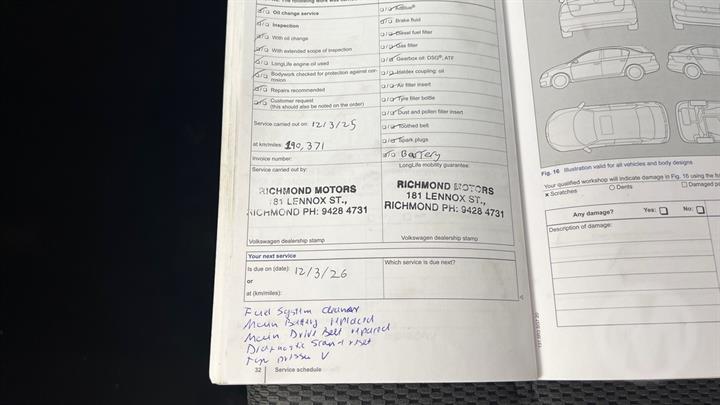 Oil change service
Inspection
With oil change
With extended scope of inspection
LongLife engine oil used
Bodywork checked for protection against cor-
rosion
Repairs recommended
Customer request
(this should also be noted on the order)
Service carried out on: 12/3/25
at km/miles: 190,371
Invoice number:
Service carried out by:
RICHMOND MOTORS
181 LENNOX ST.,
RICHMOND PH: 9428 4731
Volkswagen dealership stamp
AdBlue®
Brake fluid
Diesel fuel filter
Gas filter
Gearbox oil: DSG®, ATF
Haldex coupling: oil
Air filter insert
Tyre filler bottle
Dust and pollen filter insert
Toothed belt
Spark plugs
Battery
LongLife mobility guarantee:
RICHMOND MOTORS
181 LENNOX ST.,
RICHMOND PH: 9428 4731
Volkswagen dealership stamp
Your next service
Is due on (date): 12/3/26
or
at (km/miles):
Which service is due next?
Fuel System cleaner
Main Battery replaced
Main Drive Belt
Diagnostic Scan reset
32 Service schedule
Fig. 16 Illustration valid for all vehicles and body designs
Your qualified workshop will indicate damage in Fig. 16 using the
× Scratches
O Dents
Damaged
Any damage? Yes: No:
Description of damage: